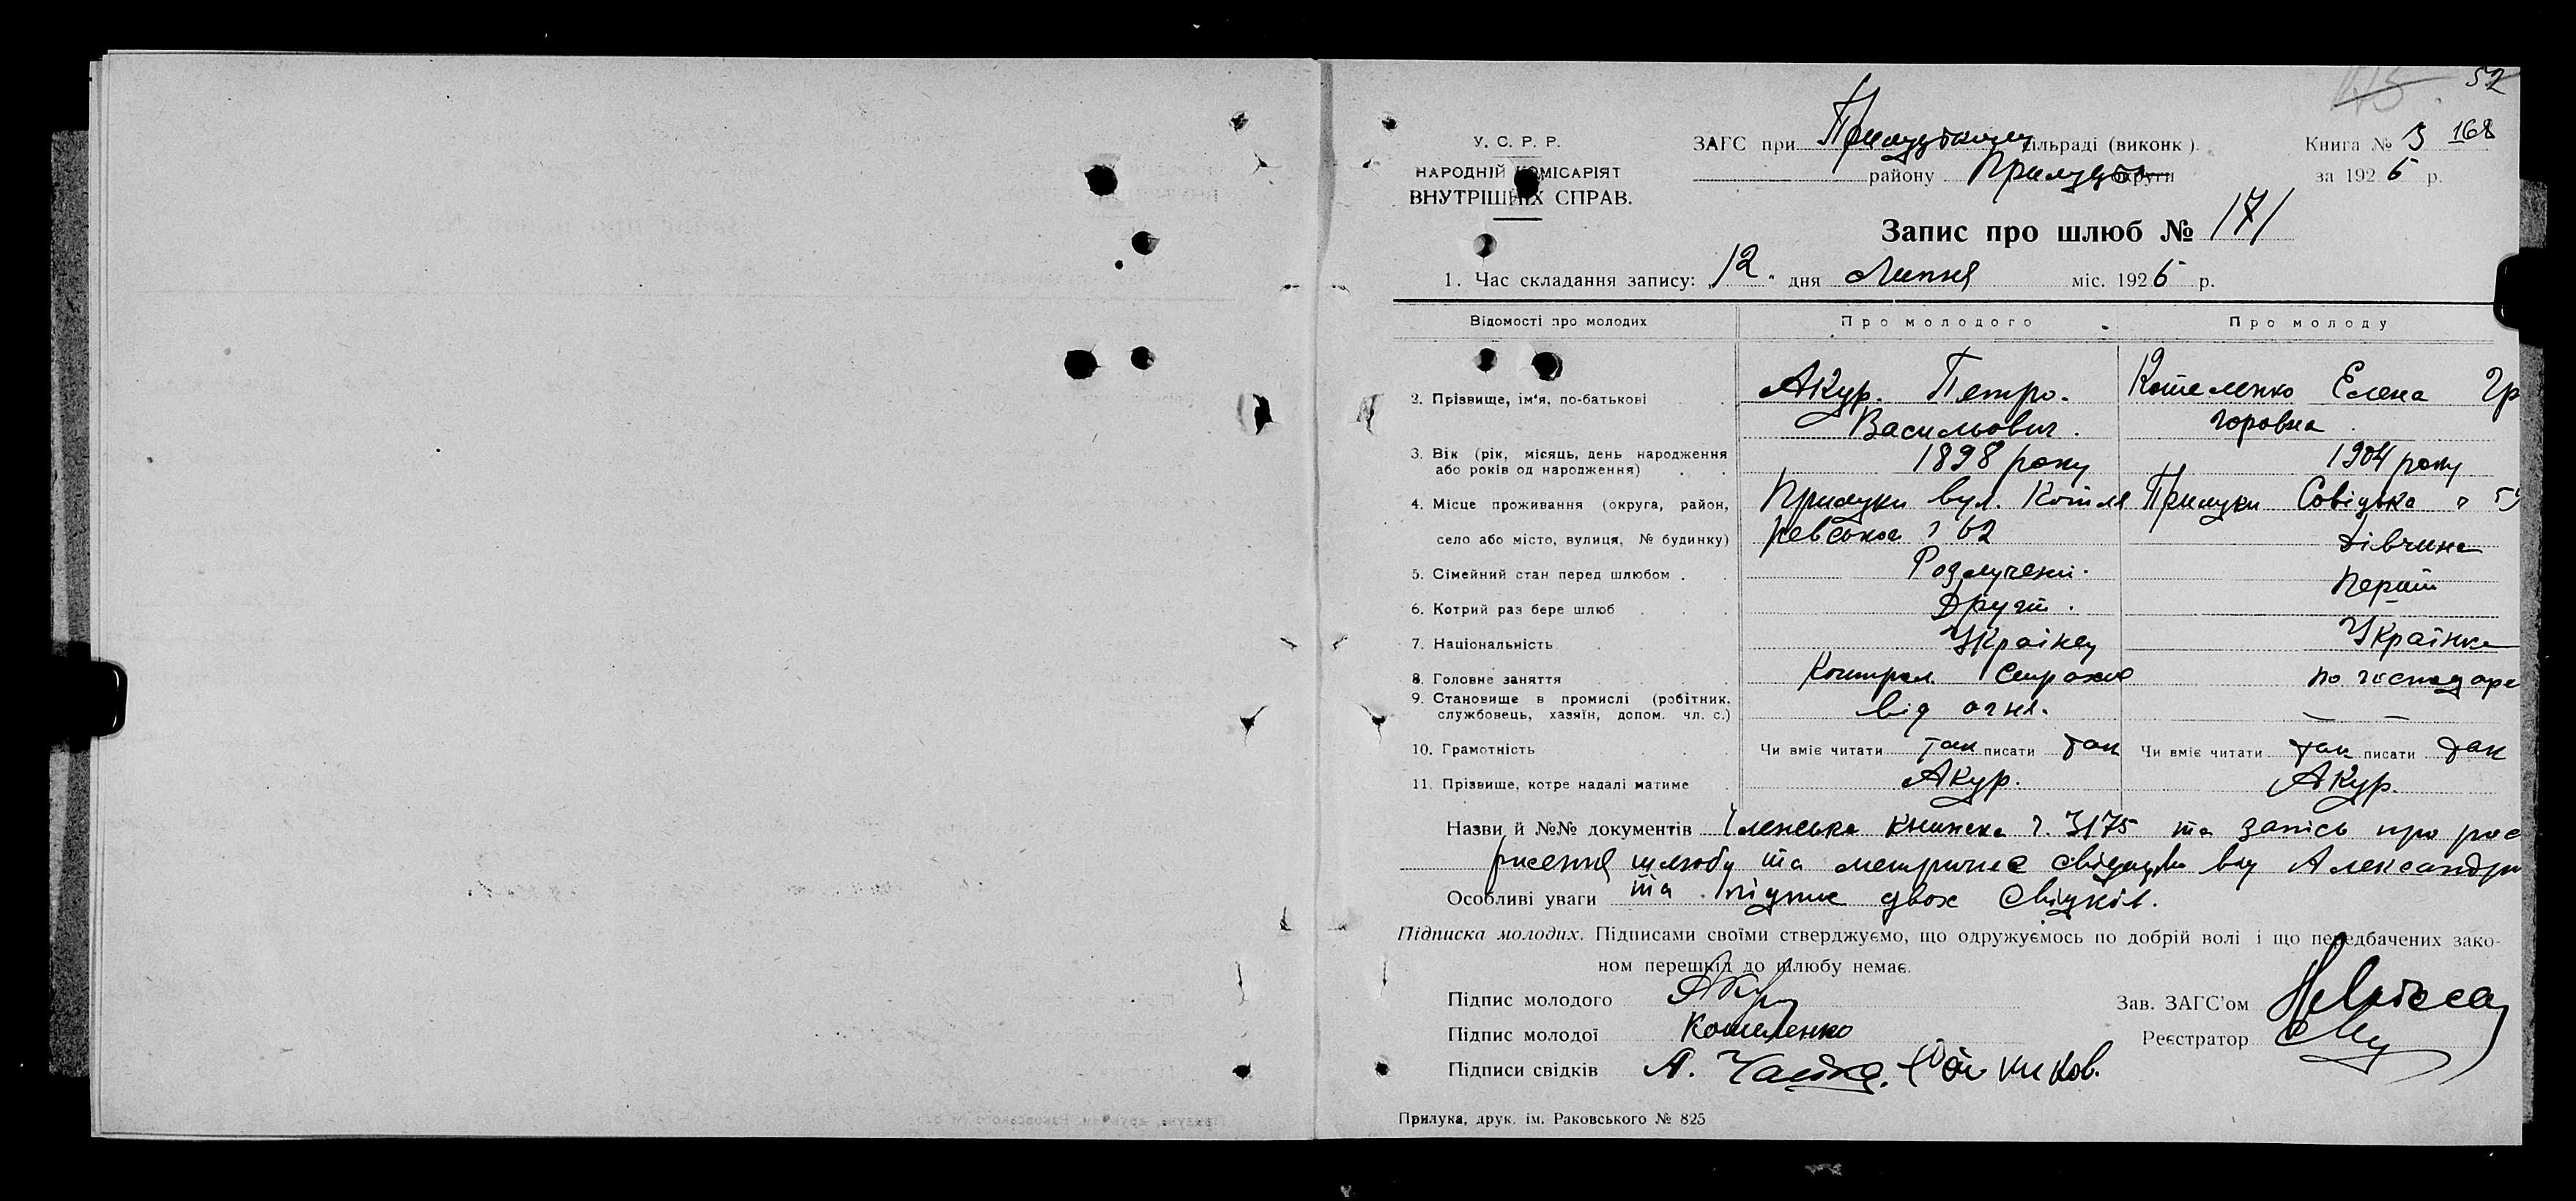 52
У. С. Р. Р.
НАРОДНІЙ КОМІСАРІЯТ
ВНУТРІШНІХ СПРАВ.
ЗАГС при сільраді (виконк).
району Прилуцьк округи
Книга № 3 168
за 1926 р.
Запис про шлюб № 171
1. Час складання запису: „12" дня Липня міс. 1926 р.
Відомості про молодих
Про молодого
Про молоду
2. Прізвище, ім'я, по-батькові
Акур. Петро.
Васильович.
Кошеленко Елена Гр
горовна
3. Вік (рік, місяць, день народження
або років од народження)
1898 року
1904 року
4. Місце проживання (округа, район,
село або місто, вулиця, № будинку)
Прилуки вул. Котля
ревська 62
Прилуки Совіцька
5. Сімейний стан перед шлюбом
Розлучений.
Дівчина
6. Котрий раз бере шлюб
Другий.
Перший
7. Національність
Украінец
Українка
8. Головне заняття
Контрол. Страхов
по господарс
9. Становище в промислі (робітник,
службовець, хазяїн, допом. чл. с.)
від огня.
— —
10. Грамотність
Чи вміє читати так писати так
Чи вміє читати так писати так
11. Прізвище, котре надалі матиме
Акур.
Акур.
Назви й №№ документів Членська книжка ч. 3175 та запісь про рос
шлюбу та метричне свідоцтво від Александри
Особливі уваги та підпис двох свідків.
Підписка молодих. Підписами своїми стверджуємо, що одружуємось по добрій волі і що передбачених зако-
ном перешкід до шлюбу немає.
Підпис молодого Акур
Підпис молодої Кошеленко
Підписи свідків А. Чайка.
Зав. ЗАГС'ом
Реєстратор
Прилука, друк. ім. Раковського № 825